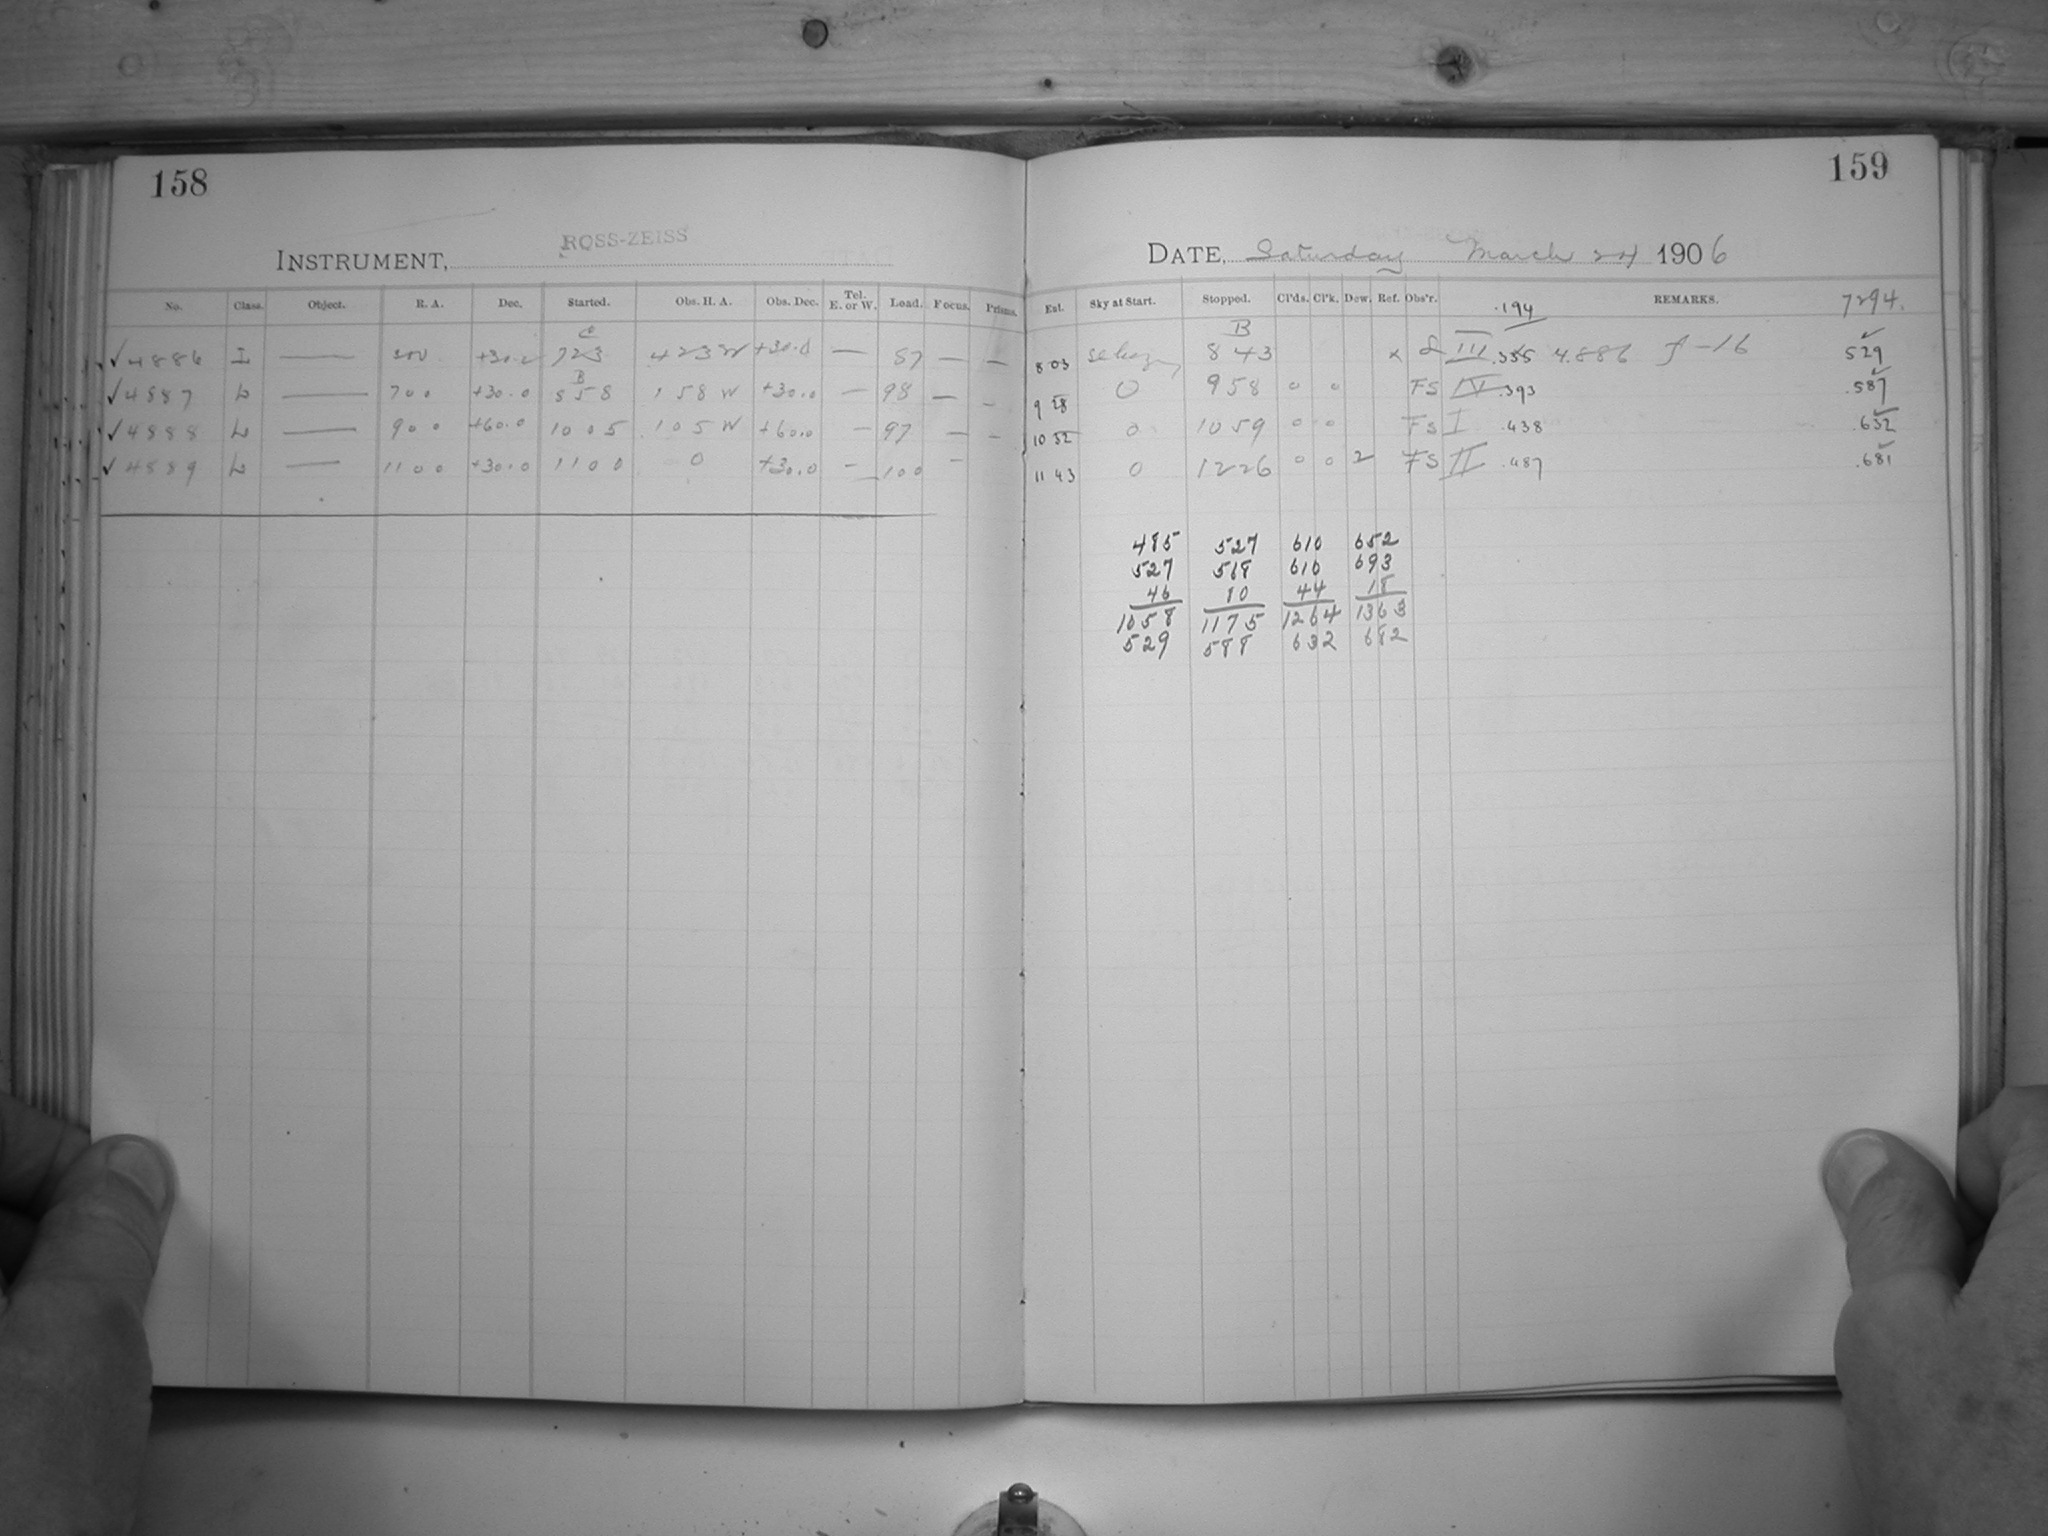 158
INSTRUMENT, ROSS-ZEISS
No. Class. Object. R. A. Dec. Started. Obs. H. A. Obs. Dec. Tel. E. or W. Load. Focus. Prisms.
C
✓4886 I — 300 +30.0 723 423W +30.0 — 87 — —
B
✓4887 L — 700 +30.0 858 158W +30.0 — 98 — —
✓4888 L — 900 +60.0 1005 105W +60.0 — 97 — —
✓4889 L — 1100 +30.0 1100 0 +30.0 — 100 —
159
DATE, Saturday March 24 1906
Ext. Sky at Start. Stopped. Cl'ds. Cl'k. Dew. Ref. Obs'r. .194 REMARKS. 7294.
B
8 03 843 x III 4886 f-16 529
9 28 0 958 0 0 FS IV .393 .587
10 32 0 1059 0 0 FS I .438 .632
11 43 0 1226 0 0 2 FS II .487 .681
485 527 610 652
527 568 610 693
46 80 44 18
1058 1175 1264 1363
529 588 632 682